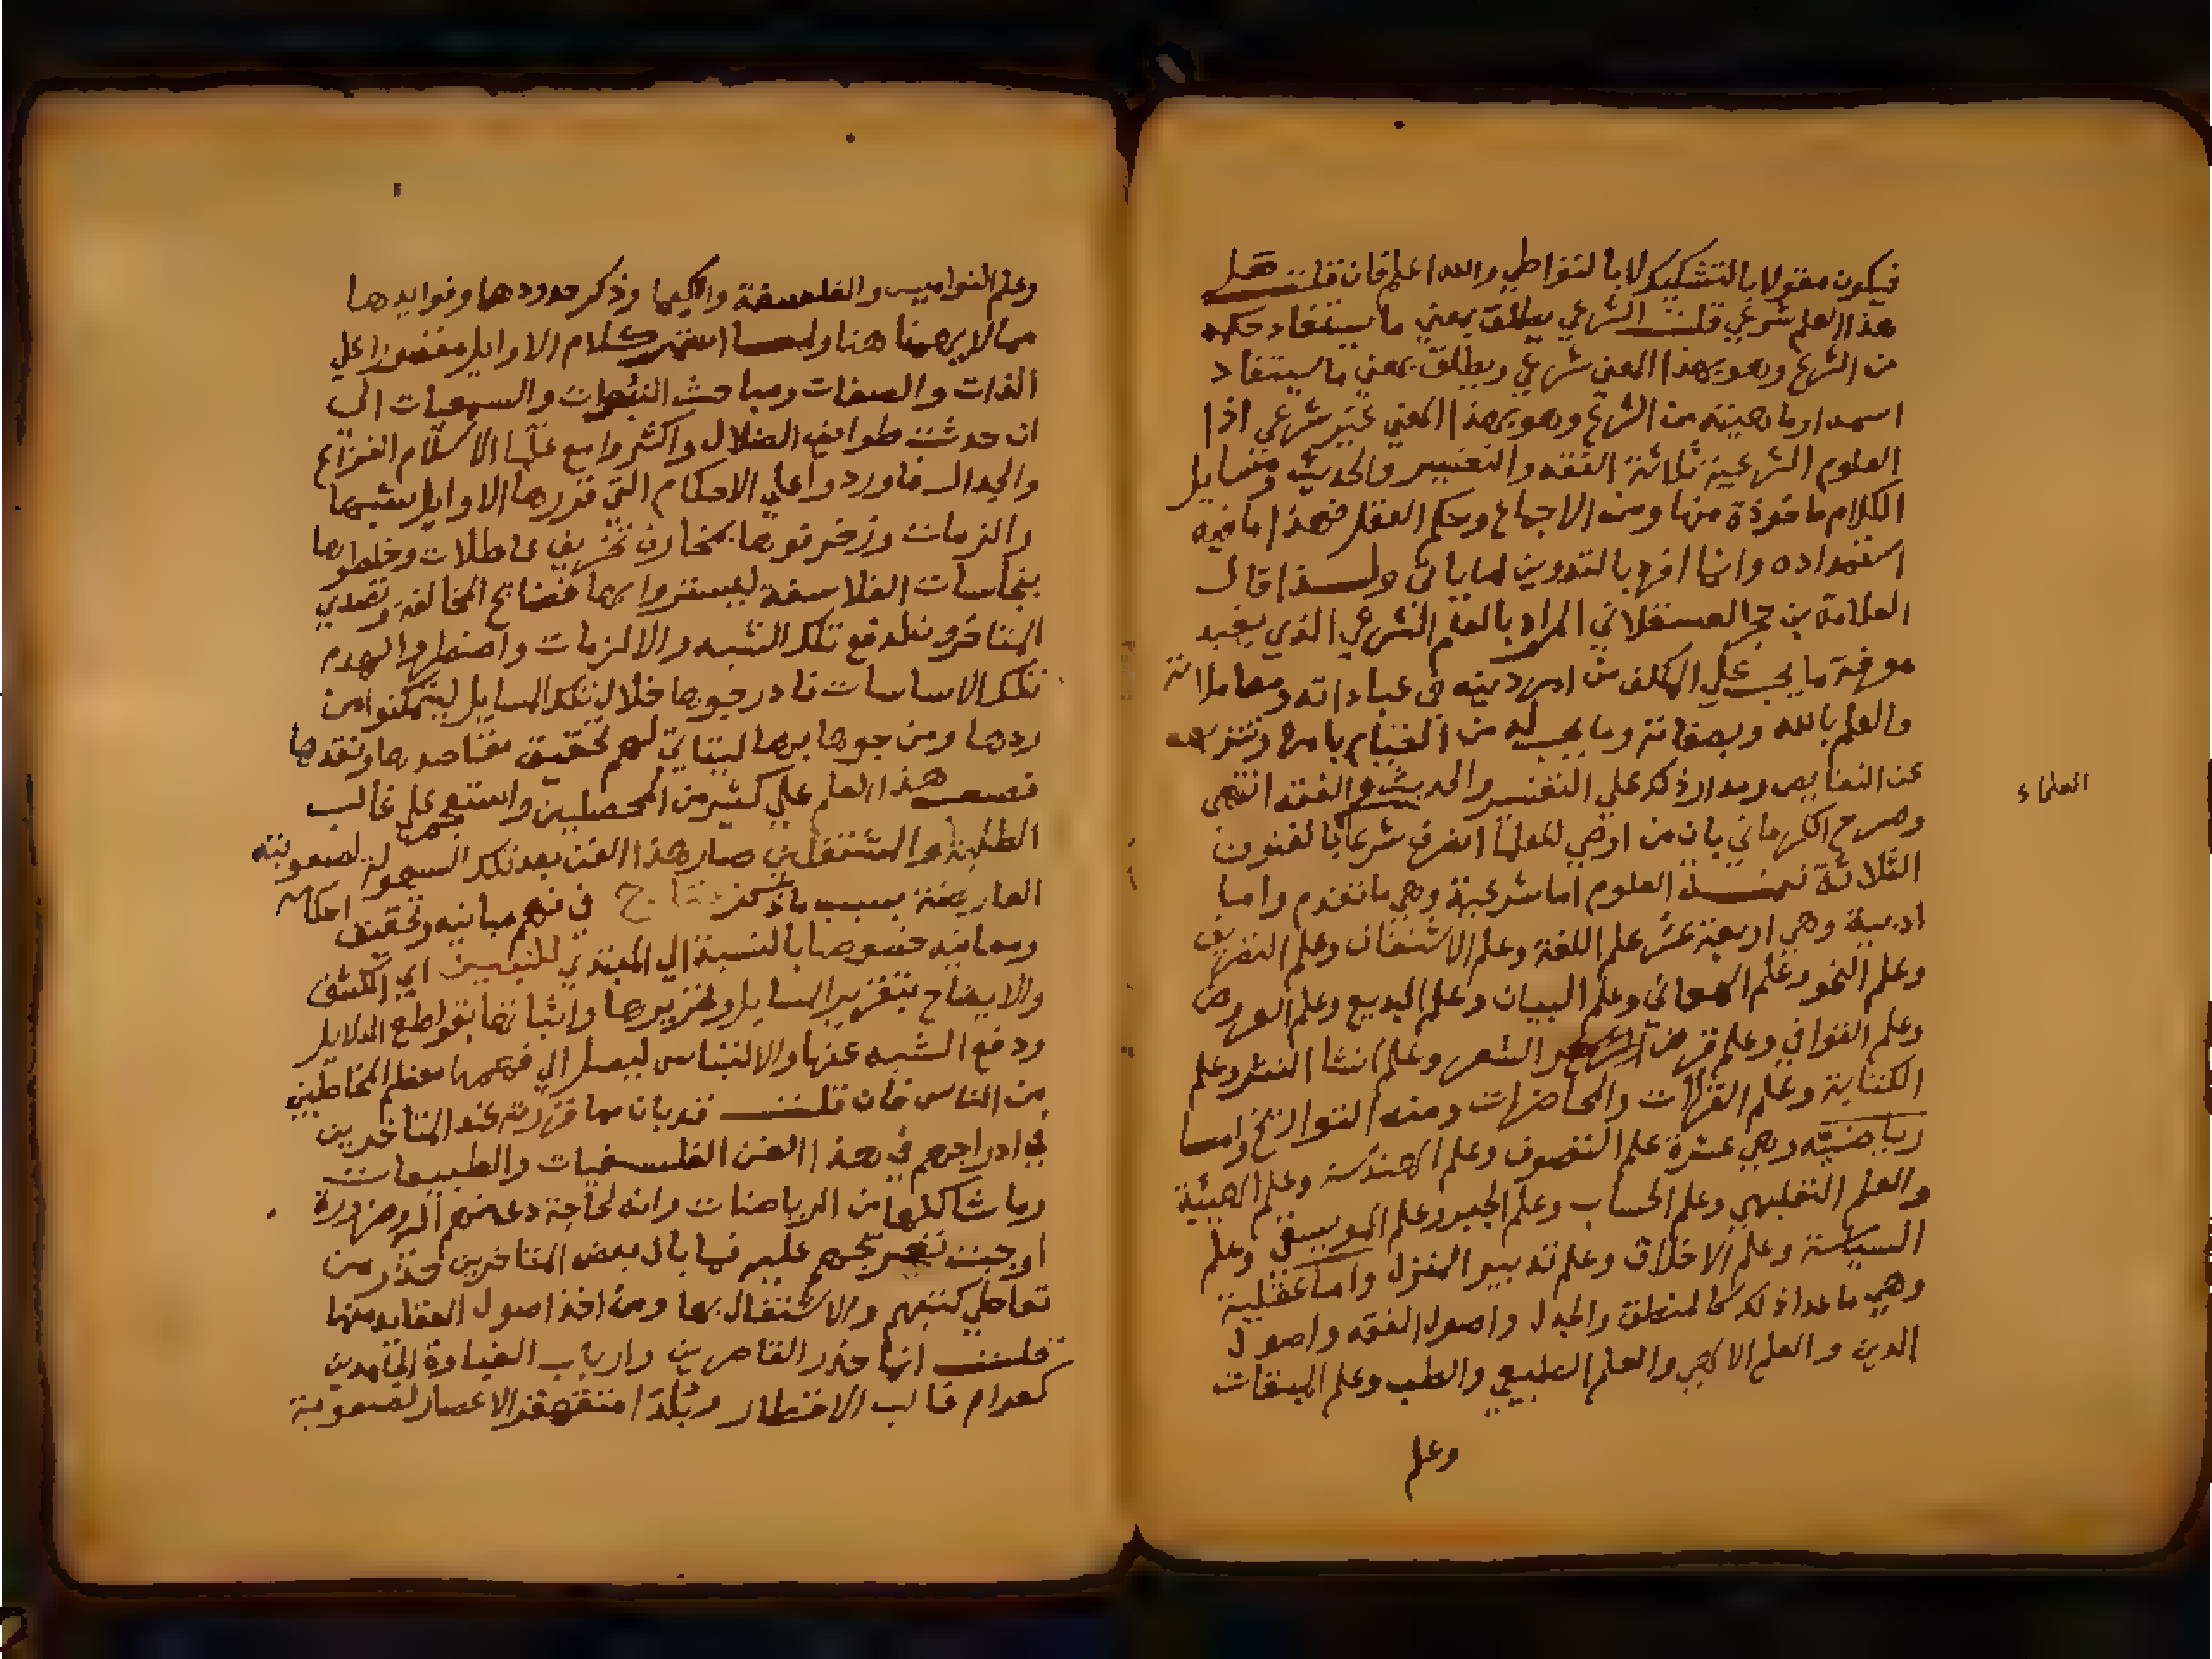 فيكون مقولا بالتشكيك لا بالتواطي والله اعلم فان قلت هل
هذا العلم شرعي قلت الشرعي يطلق بمعني ما يستفاد حكمه
من الشرع وهو بهذا المعني شرعي ويطلق بمعني ما يستفاد
اسمه او ماهيته من الشرع وهو بهذا المعني غير شرعي اذا
العلوم الشرعية ثلاثة الفقه والتفسير والحديث ومسايل
الكلام ماخوذة منها ومن الاجماع وحكم العقل فهذا ما فيه
استمداده وانما افرد بالتدوين لما ياتي ولذا قال
العلامة بن حجر العسقلاني المراد بالعلم الشرعي الذي يفيد
معرفة ما يجب علي المكلف من امر دينه في عباداته ومعاملاته
والعلم بالله وبصفاته وما يجب له من القيام بامره وتنزيهه
عن النقايص ومدار ذلك علي التفسير والحديث والفقه انتهي
العلماء
وصرح الكرماني بان من اوصي للعلما انصرف شرعا بالفنون
الثلاثة العلوم اما شرعية وهي ما تقدم واما
ادبية وهي اربعة عشر علم اللغة وعلم الاشتقاق وعلم التصريف
وعلم النحو وعلم المعاني وعلم البيان وعلم البديع وعلم العروض
وعلم القوافي وعلم قرض الشعر وعلم انشا النثر وعلم
الكتابة وعلم القراات والمحاضرات ومنه التواريخ واما
رياضية وهي عشرة علم التصوف وعلم الهندسة وعلم الهيئة
والعلم التعليمي وعلم الحساب وعلم الجبر وعلم الموسيقي وعلم
السياسة وعلم الاخلاق وعلم تدبير المنزل واما عقلية
وهي ما عدا ذلك كالمنطق والجدل واصول الفقه واصول
الدين والعلم الالهي والعلم الطبيعي والطب وعلم الميقات
وعلم
وعلم النواميس والفلسفة والكيميا وذكر حدودها وفوايدها
مما لا يهمنا هنا ولما استمر كلام الاوايل مقصورا علي
الذات والصفات ومباحث النبوات والسمعيات الي
ان حدثت طوايف الضلال واكثروا مع علما الاسلام النزاع
والجدال فاوردوا علي الاحكام التي قررها الاوايل شبها
والزمات وزخرفوها بمخارف وخلطوها
بنجاسات الفلاسفة ليستروا بها فضايح المخالفة وتصدي
المتاخرون لدفع تلك الشبه والالزمات واضطروا لهدم
تلك الاساسات فادرجوها خلال تلك المسايل ليتمكنوا من
ردها ومزجوها بها ليتاتي لهم تحقيق مقاصدها ونقدها
فصعب هذا العلم علي كثير من المحصلين واستعجم علي غالب
الطلبة والمشتغلين صار هذا الفن بعد تلك السهولة لصعوبته
العارضة بسبب ما ذكر يحتاج في فهم مبانيه وتحقيق احكامه
ومعانيه خصوصا بالنسبة الي المبتدي للتبيين اي الكشف
والايضاح بتقرير المسايل وتحريرها واثباتها بقواطع الدلايل
ودفع الشبه عنها والالتباس ليصل الي فهمها معظم المخاطبين
من الناس فان قلت قد بان مما قررته عند المتاخرين
في ادراجهم في هذا الفن الفلسفيات والطبيعيات
وما شاكلها من الرياضات وانه لحاجة دعتهم اليه وضرورة
اوجبت عليه فما بال بعض المتاخرين حذر من
تعاطي كتبهم والاشتغال بها ومن اخذ اصول العقايد منها
قلت انما حذر القاصرين وارباب الغباوة الجامدين
كعوام غالب الاقطار الاعصار لصعوبة